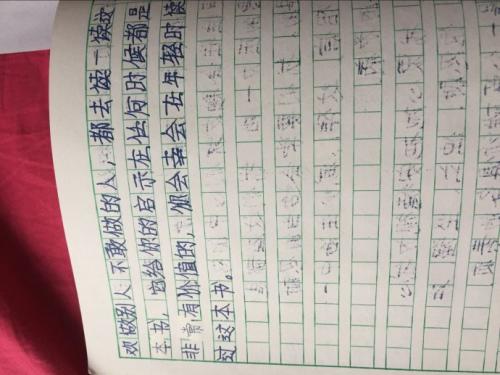 欢做别人不敢做的人，都去读一读这
本书，它给你的启示在任何时候都是
非常有价值的，你会幸会在年轻时读
过这本书。